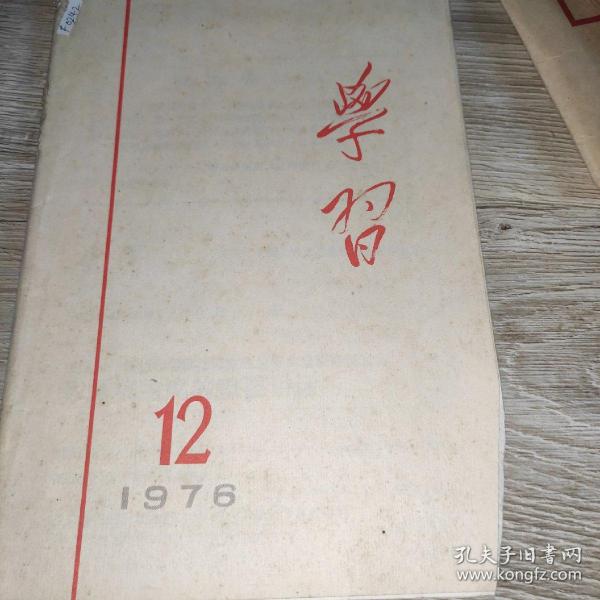 F0242
學習
12
1976
孔夫子旧书网
www.kongfz.com